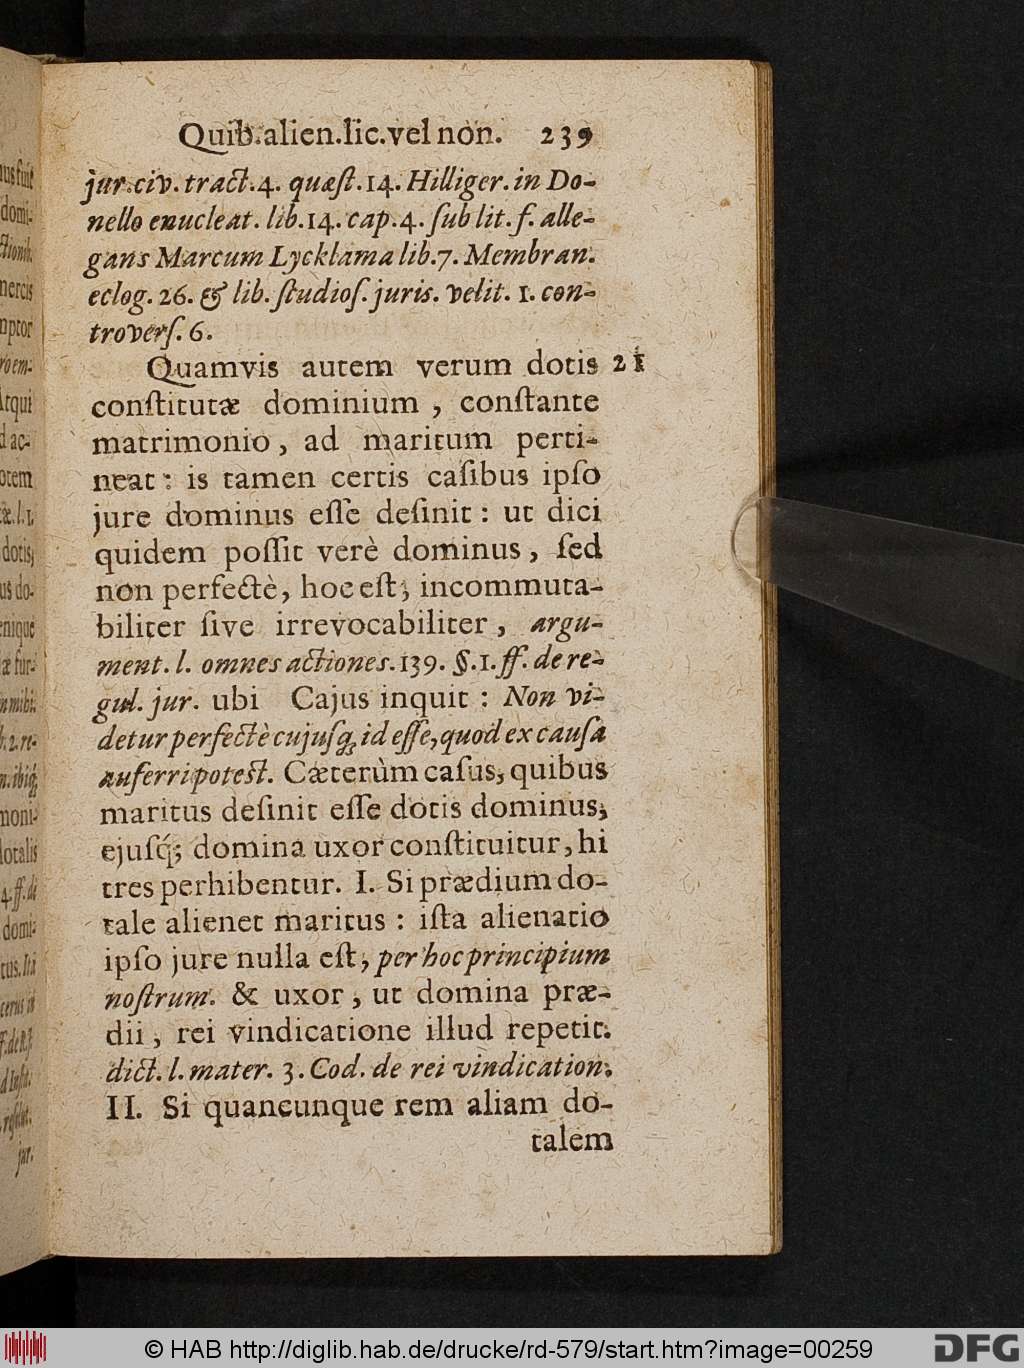 Quib.alien.lic.vel non. 239
jur.civ.tract.4. quæſt.14. Hilliger. in Do-
nello enucleat. lib.14. cap.4. ſub lit. f. alle-
gans Marcum Lycklama lib.7. Membran.
eclog. 26. & lib. ſtudioſ. juris. velit. 1. con-
troverſ. 6.
Quamvis autem verum dotis 21
conſtitutæ dominium, conſtante
matrimonio, ad maritum perti-
neat: is tamen certis caſibus ipſo
jure dominus eſſe deſinit: ut dici
quidem poſſit verè dominus, ſed
non perfectè, hoc eſt; incommuta-
biliter ſive irrevocabiliter, argu-
ment. l. omnes actiones. 139. §.1. ff. de re-
gul. jur. ubi Cajus inquit: Non vi-
detur perfectè cujuſq; id eſſe, quod ex cauſa
auferri poteſt. Cæterùm caſus, quibus
maritus deſinit eſſe dotis dominus,
ejuſq́; domina uxor conſtituitur, hi
tres perhibentur. I. Si prædium do-
tale alienet maritus: iſta alienatio
ipſo jure nulla eſt, per hoc principium
noſtrum. & uxor, ut domina præ-
dii, rei vindicatione illud repetit.
dict. l. mater. 3. Cod. de rei vindication.
II. Si quancunque rem aliam do-
talem
© HAB http://diglib.hab.de/drucke/rd-579/start.htm?image=00259
DFG